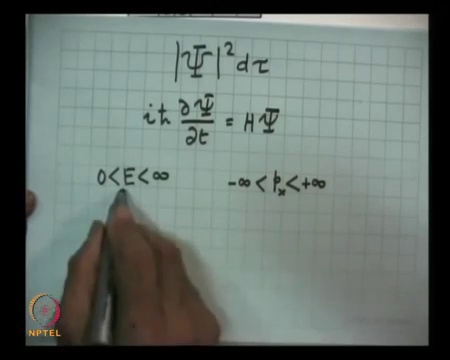 |Ψ|² dτ
iħ ∂Ψ/∂t = HΨ
0 < E < ∞ -∞ < pₓ < +∞
NPTEL